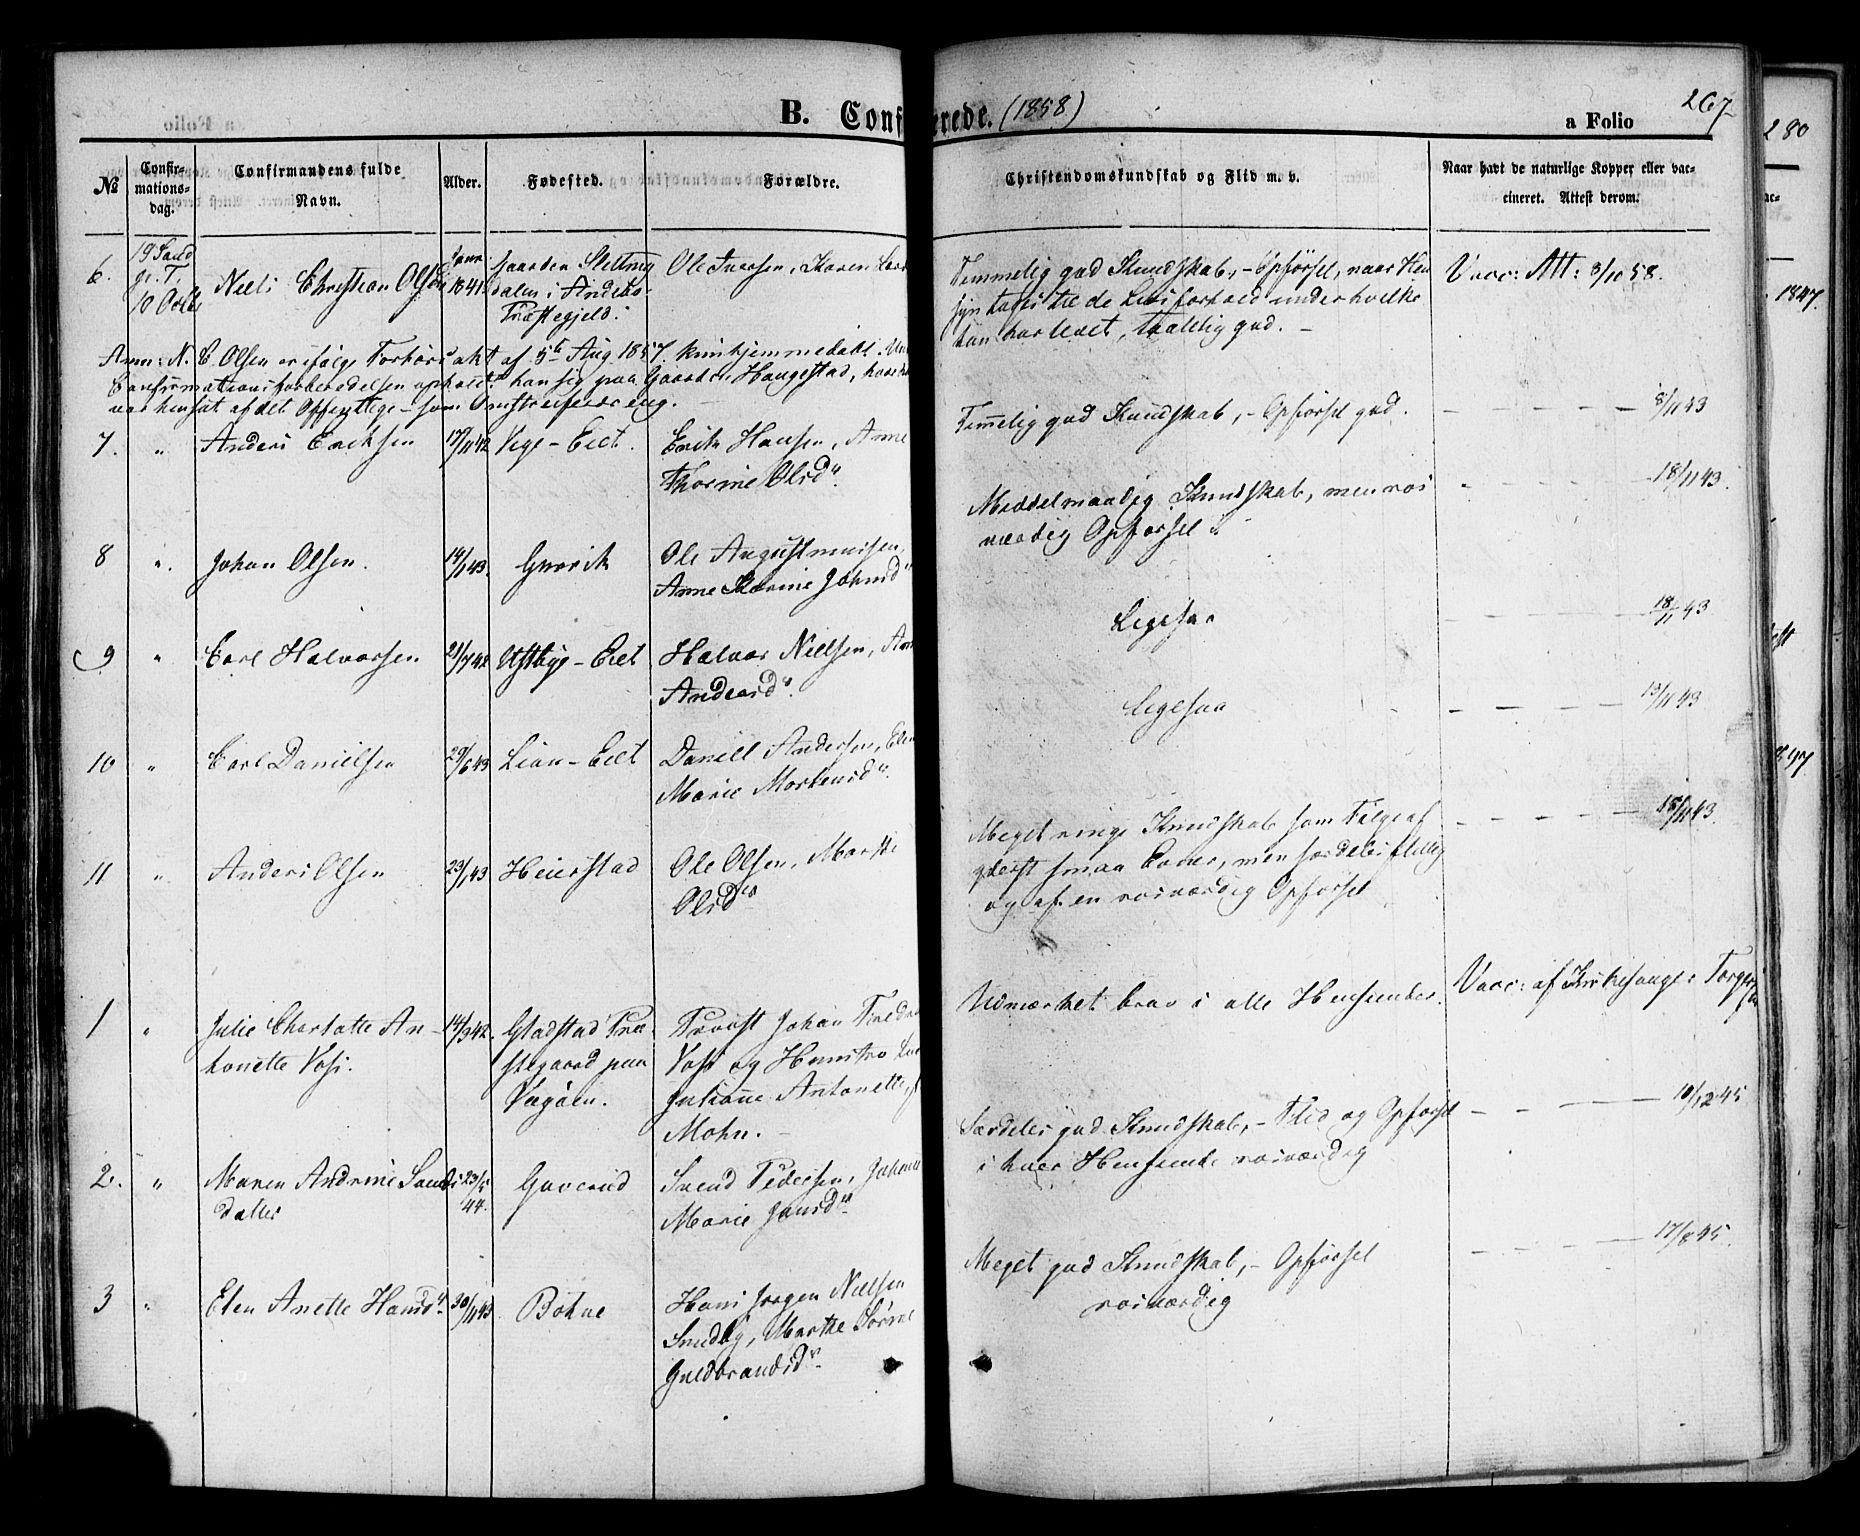 B. Conf erede. (1858)
267
a Folio
280
№
Confir-
mations-
dag.
Confirmandens fulde
Navn.
Alder.
Fødested.
Forældre.
Christendomskundskab og Flid m. v.
Naar havt de naturlige Kopper eller vac-
cineret. Attest derom.
6.
19 Sønd
gr. T.
10 Octbr
Niels Christian Olsen
Janr.
1841
Gaarden Sletting
dalen i Andebo
Præstegjeld.
Ole Iversen, Karen Lars
Temmelig god Kundskab, - Opførsel, naar Hen
syn tages til de Livsforhold under hvilke
han har levet, taalelig god. -
Vacc: Att: 8/10 58.
1847.
Anm: N. C. Olsen er ifølge Forhørsakt af 5te Aug 1857
Confirmationsforberedelsen opholdt han sig paa Gaarden Haugestad, hvor han
var hensat af det Offentlige - som Omstreiferdreng.
7.
"
Anders Eriksen
17/11 42
Vege - Eiet.
Erik Hansen, Anne
Thorine Olsdr.
Temmelig god Kundskab, - Opførsel god.
8/11 43
8
"
Johan Olsen.
14/1 43.
Gmorik
Ole Augustinussen,
Anne Karine Johnsdr
Middelmaadig Kundskab, men ros
værdig Opførsel.
18/11 43.
9
"
Carl Halvorsen
21/7 42
Østbye - Eiet
Halvor Nielsen, Ann
Andersdr.
Ligesaa
18/11 43
10
"
Carl Daniilsen
29/6 43
Lian - Eiet
Daniil Andersen, Elen
Marie Mortensdr.
Ligesaa
13/11 43
11
"
Anders Olsen
23/1 43
Heierstad
Ole Olsen, Marthe
Olsdr
Meget ringe Kundskab som Følge af
yderst smaa Evner, men særdeles flittig
og af en rosværdig Opførsel
18/11 43.
1
"
Julie Charlotte An-
tonette Voss.
14/3 42.
Gladstad Præ-
stegaard paa
Vegøen.
Provst Johan Fredr
Voss og Hustro
Juliane Antonette, f
Mohn. -
Udmærket brav i alle Henseender.
Vacc: af Kirkesanger Torger
2.
"
Maren Andrine Sønds
datter
23/5
44.
Gaverud
Svend Pedersen, Johanne
Marie Jansdr.
Særdeles god Kundskab, - Flid og Opførsel
i hver Henseende rosværdig
10/12 45
3
"
Elen Anette Hansdr.
30/11 43
Bohne
Hans Jørgen Nielsen
Snedbg, Marthe Sørine
Guldbrandsdr.
Meget god Kundskab, - Opførsel
rosværdig
17/8 45.